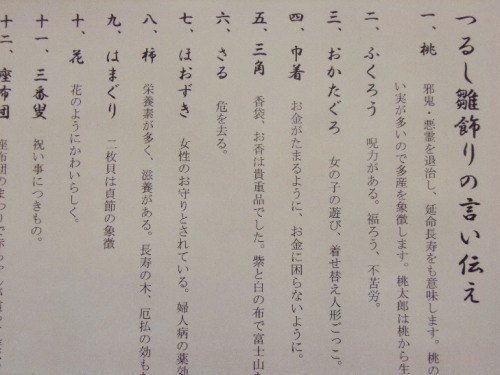 つるし雛飾りの言い伝え
一、桃 邪鬼・悪霊を退治し、延命長寿をも意味します。桃の
い実が多いので多産を象徴します。桃太郎は桃から生
二、ふくろう 呪力がある。福ろう、不苦労。
三、おかたぐろ 女の子の遊び、着せ替え人形ごっこ。
四、巾着 お金がたまるように、お金に困らないように。
五、三角 香袋、お香は貴重品でした。紫と白の布で富士山を
六、さる 危を去る。
七、ほおずき 女性のお守りとされている。婦人病の薬効
八、柿 栄養素が多く、滋養がある。長寿の木、厄払の効も
九、はまぐり 二枚貝は貞節の象徴
十、花 花のようにかわいらしく。
十一、三番叟 祝い事につきもの。
十二、座布団